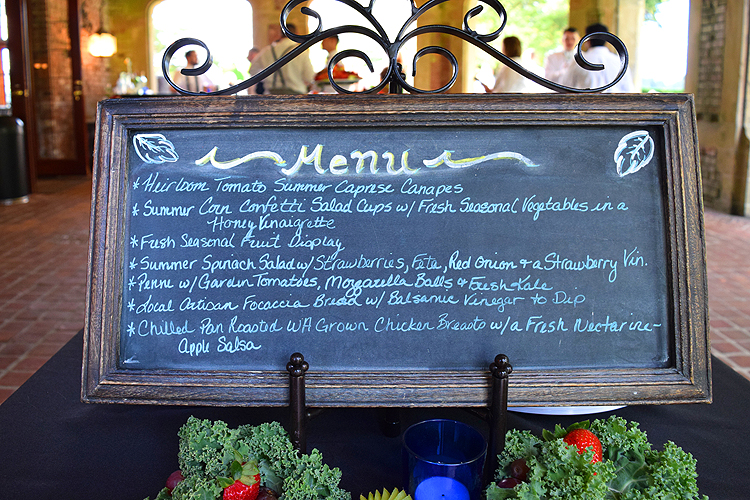 Menu
* Heirloom Tomato Summer Caprese Canapes
* Summer Corn Confetti Salad Cups w/ Fresh Seasonal Vegetables in a
Honey Vinaigrette
* Fresh Seasonal Fruit Display
* Summer Spinach Salad w/ Strawberries, Feta, Red Onion & a Strawberry Vin.
* Penne w/ Garden Tomatoes, Mozzarella Balls & Fresh Kale
* Local Artisan Focaccia Bread w/ Balsamic Vinegar to Dip
* Chilled Pan Roasted WA Grown Chicken Breasts w/ a Fresh Nectarine-
Apple Salsa